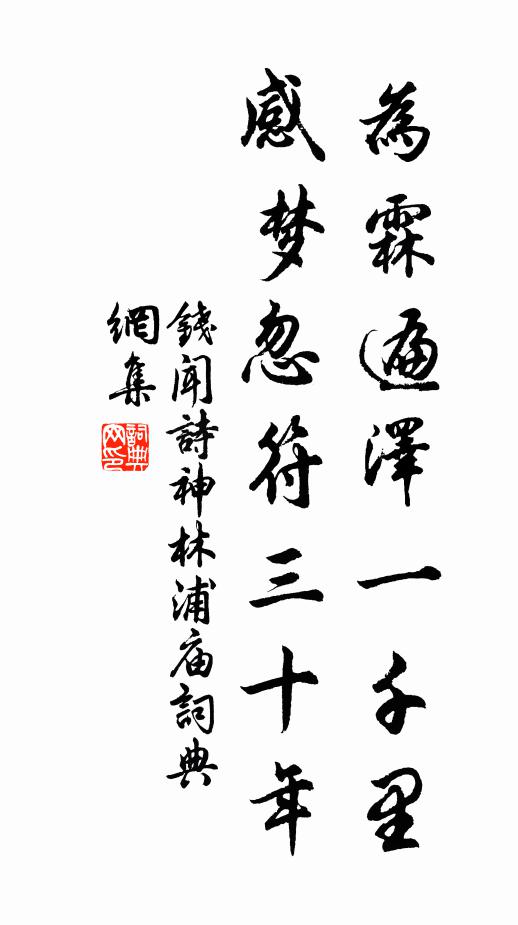 為霖遍澤一千里
感梦忽符三十年
錢聞詩神林浦庙詞典
網集
詞典
网印